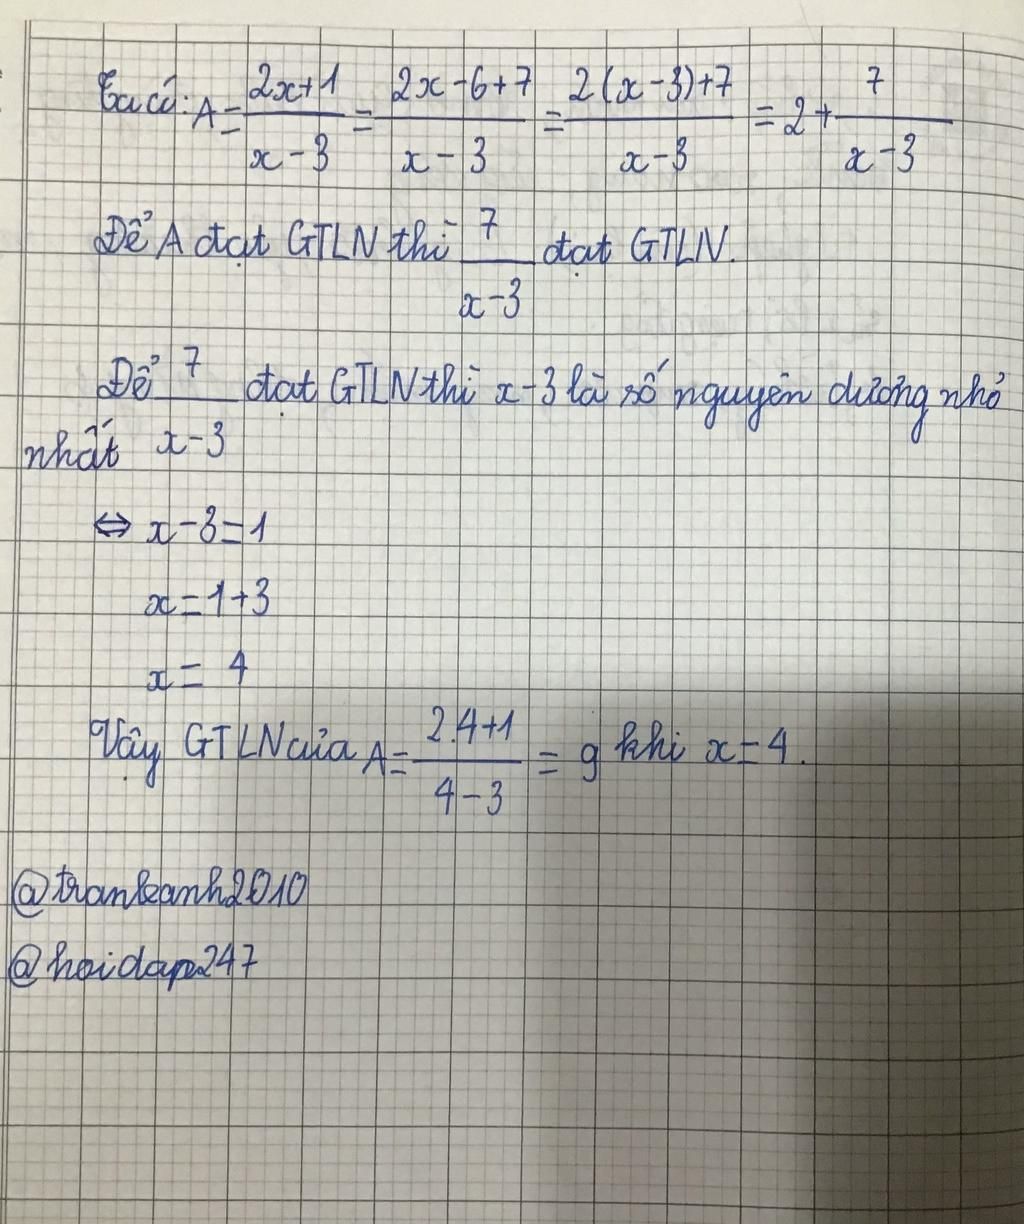 Ta có: A = \frac{2x+1}{x-3} = \frac{2x-6+7}{x-3} = \frac{2(x-3)+7}{x-3} = 2 + \frac{7}{x-3}
Để A đạt GTLN thì \frac{7}{x-3} đạt GTLN.
Để \frac{7}{x-3} đạt GTLN thì x-3 là số nguyên dương nhỏ
nhất
⇔ x-3=1
x=1+3
x= 4
Vậy GTLN của A= \frac{2.4+1}{4-3} = 9 khi x=4.
@trankanh2010
@hoidap247